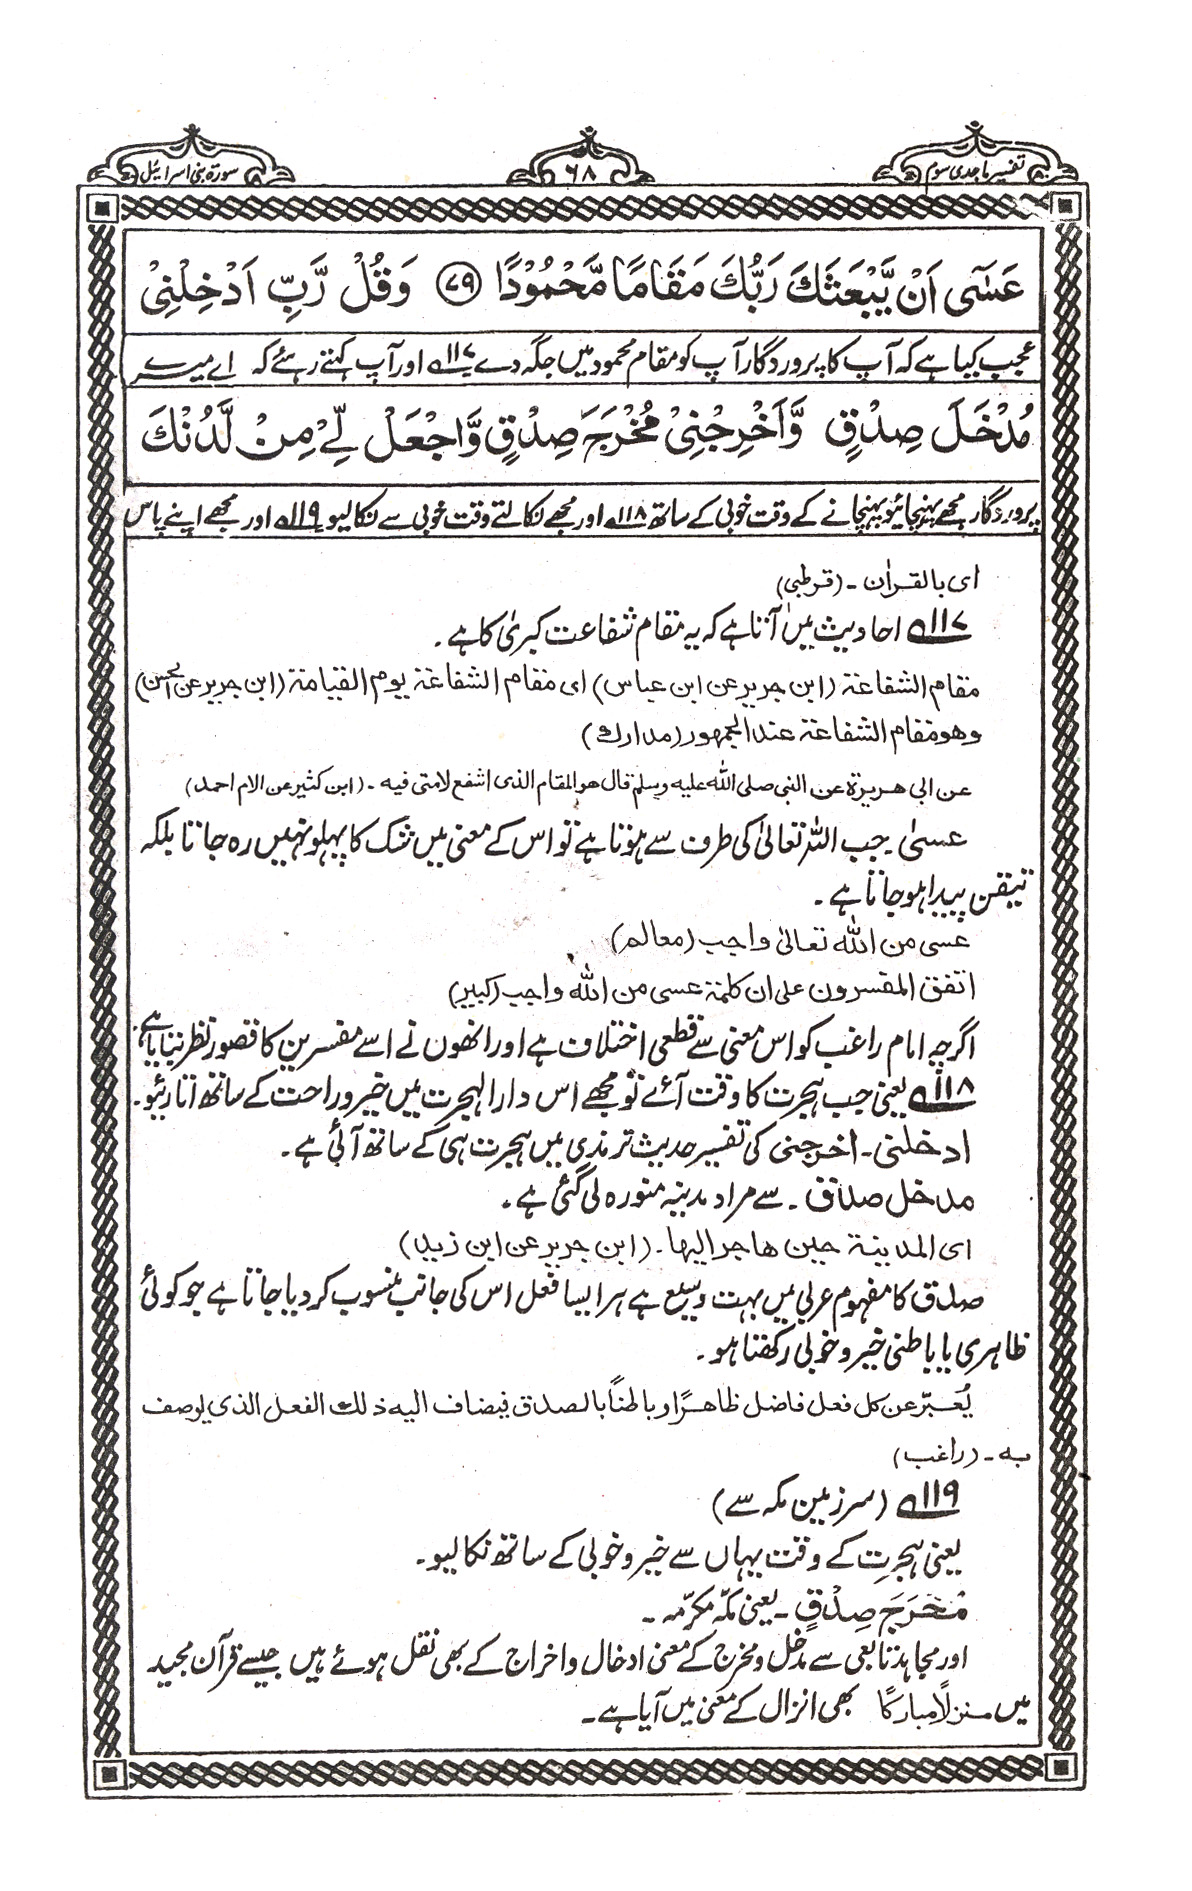 تفسیر ماجدی سوم
۶۸
سورۃ بنی اسرائیل
عَسٰۤى اَنْ یَّبْعَثَكَ رَبُّكَ مَقَامًا مَّحْمُوْدًا ﴿۷۹﴾ وَقُلْ رَّبِّ اَدْخِلْنِیْ
عجب کیا ہے کہ آپ کا پروردگار آپ کو مقام محمود میں جگہ دے ۱۱۷؎ اور آپ کہتے رہئے کہ اے میرے
مُدْخَلَ صِدْقٍ وَّاَخْرِجْنِیْ مُخْرَجَ صِدْقٍ وَّاجْعَلْ لِّیْ مِنْ لَّدُنْكَ
پروردگار مجھے پہنچائیو پہنچانے کے وقت خوبی کے ساتھ ۱۱۸؎ اور مجھے نکالتے وقت خوبی سے نکالیو ۱۱۹؎ اور مجھے اپنے پاس
ای بالقراٰن ۔ (قرطبی)
۱۱۷؎ احادیث میں آتا ہے کہ یہ مقام شفاعت کبریٰ کا ہے ۔
مقام الشفاعۃ (ابن جریر عن ابن عباس) ای مقام الشفاعۃ یوم القیامۃ (ابن جریر عن الحسن)
وھو مقام الشفاعۃ عند الجمہور (مدارك)
عن ابی ھریرۃ عن النبی صلی اللہ علیہ وسلم قال ھو المقام الذی اشفع لامتی فیہ ۔ (ابن کثیر عن الام احمد)
عسیٰ ۔ جب اللہ تعالیٰ کی طرف سے ہوتا ہے تو اس کے معنی میں شک کا پہلو نہیں رہ جاتا بلکہ
تیقن پیدا ہو جاتا ہے ۔
عسی من اللہ تعالیٰ واجب (معالم)
اتفق المفسرون علی ان کلمۃ عسی من اللہ واجب (کبیر)
اگرچہ امام راغب کو اس معنی سے قطعی اختلاف ہے اور انھوں نے اسے مفسرین کا قصور نظر بتایا ہے،
۱۱۸؎ یعنی جب ہجرت کا وقت آئے تو مجھے اس دار الہجرت میں خیر و راحت کے ساتھ اتاریئو۔
ادخلنی ۔ اخرجنی کی تفسیر حدیث ترمذی میں ہجرت ہی کے ساتھ آئی ہے ۔
مدخل صدق ۔ سے مراد مدینہ منورہ لی گئی ہے ۔
ای المدینۃ حین ھاجر الیھا ۔ (ابن جریر عن ابن زید)
صدق کا مفہوم عربی میں بہت وسیع ہے ہر ایسا فعل اس کی جانب منسوب کر دیا جاتا ہے جو کوئی
ظاہری یا باطنی خیر و خوبی رکھتا ہو ۔
یُعبّر عن کل فعل فاضل ظاھرًا وباطنًا بالصدق فیضاف الیہ ذلك الفعل الذی یوصف
بہ ۔ (راغب)
۱۱۹؎ (سرزمین مکہ سے)
یعنی ہجرتِ کے وقت یہاں سے خیر و خوبی کے ساتھ نکالیو ۔
مُخْرَجَ صِدْقٍ ۔ یعنی مکّہ مکرّمہ ۔
اور مجاہد تابعی سے مدخل و مخرج کے معنی ادخال و اخراج کے بھی نقل ہوئے ہیں جیسے قرآن مجید
میں منزلًا مبارکًا بھی انزال کے معنی میں آیا ہے ۔